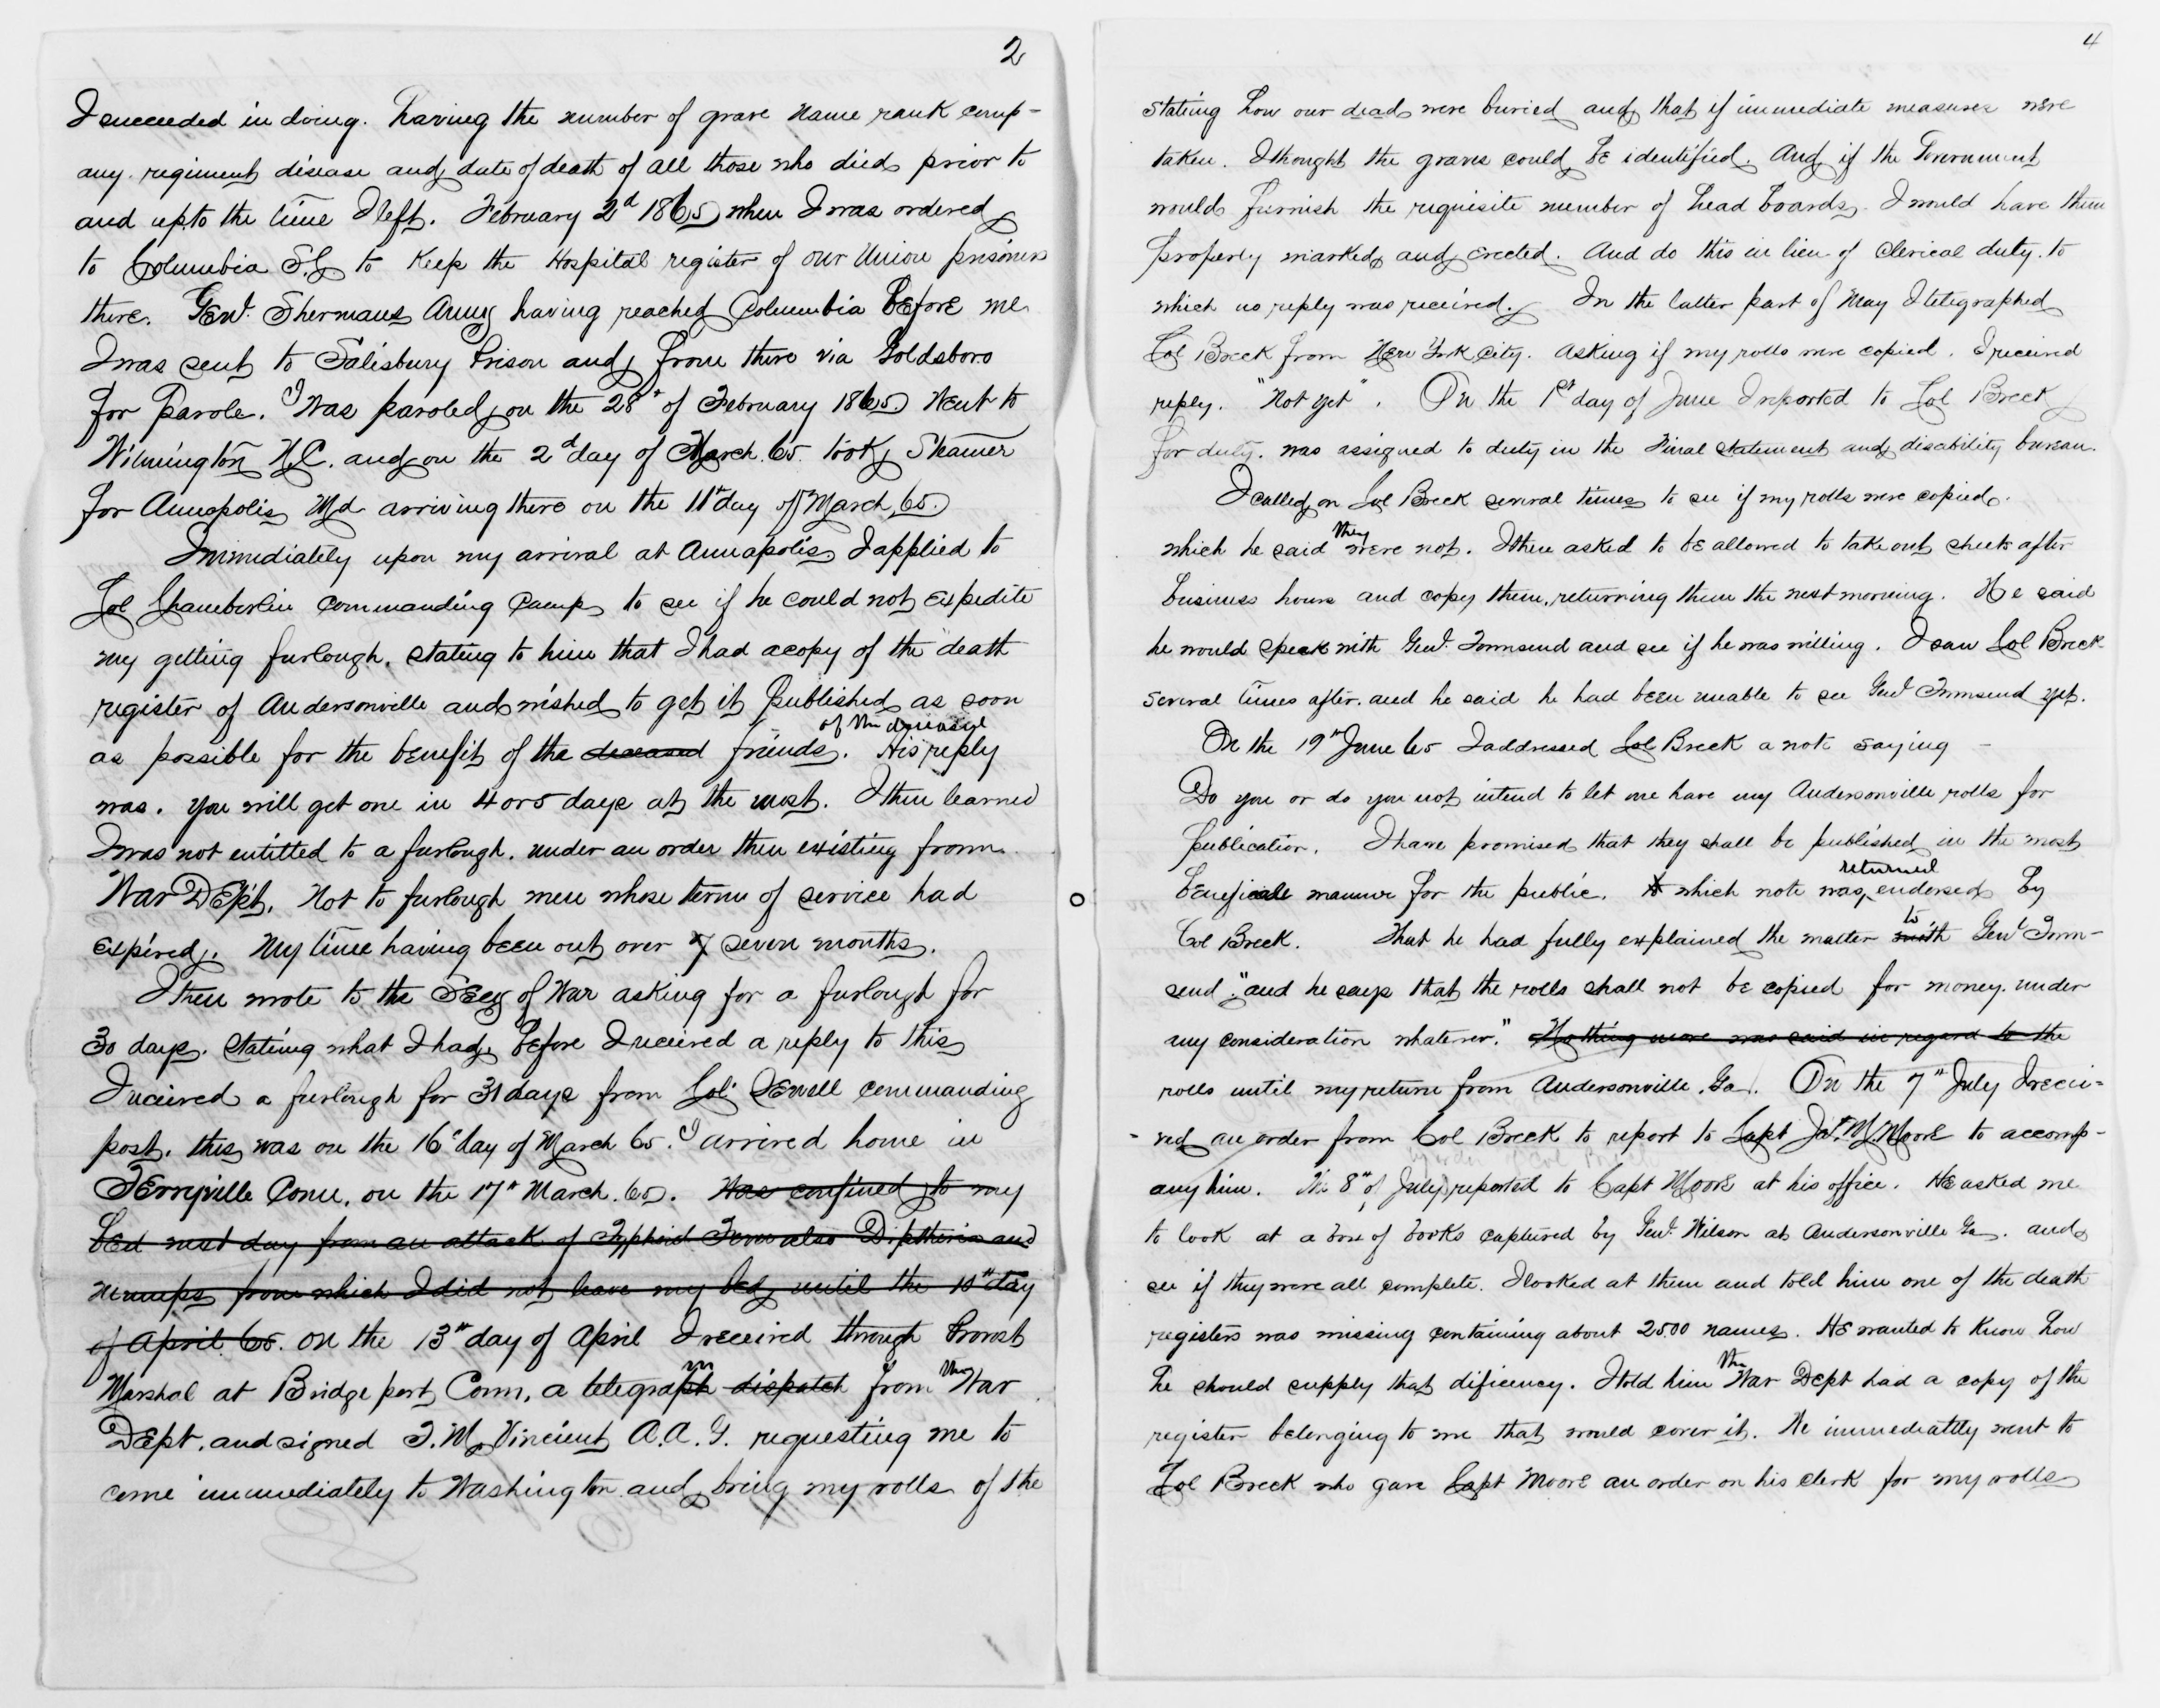 2
I succeeded in doing. having the number of grave name rank comp-
any. regiment disease and date of death of all those who died prior to
and upto the time I left. February 2d 1865 when I was ordered
to Columbia S.C. to Keep the Hospital register of our Union prisoners
there. Genl. Shermans Army having reached Columbia before me
I was sent to Salisbury Prison and from there via Goldsboro
for Parole. I Was paroled on the 28th of February 1865 Went to
Wilmington N.C. and on the 2d day of March. 65. took Steamer
for Annapolis Md arriving there on the 11th day of March, 65.
Immediately upon my arrival at Annapolis I applied to
Col Chamberlin commanding Camp to see if he could not expedite
my getting furlough. stating to him that I had a copy of the death
register of Andersonville and wished to get it published as soon
of the deceased
as possible for the benefit of the deceased friends. His reply
was. you will get one in 4 or 5 days at the most. I then learned
I was not entitled to a furlough. under an order then existing from
War Dept. Not to furlough men whose term of service had
expired. My time having been out over 7 seven months.
I then wrote to the Secy of War asking for a furlough for
30 days. stating what I had. before I received a reply to this
I received a furlough for 31 days from Col. Sewell commanding
post. this was on the 16th day of March 65. I arrived home in
Terryville Conn. on the 17th March. 65. Was confined to my
bed next day from an attack of Typhoid Fever also Diptheria and
mumps from which I did not leave my bed until the 10th day
of April. 65. on the 13th day of April I received through Provost
m the
Marshal at Bridgeport Conn, a telegraph dispatch from War
Dept. and signed T. M. Vincient A.A.G. requesting me to
come immediately to Washington and bring my rolls of the
4
stating how our dead were buried and that if immediate measures were
taken. I thought the graves could be identified. And if the Government
would furnish the requisite number of head boards. I would have them
properly marked and erected. And do this in lieu of Clerical duty. to
which no reply was received. In the latter part of May I telegraphed
Col Breck from New York City. asking if my rolls were copied. I received
reply. "Not yet". On the 1st day of June I reported to Col Breck
for duty. was assigned to duty in the Final statement and disability bureau.
I called on Col Breck several times to see if my rolls were copied.
they
which he said were not. I then asked to be allowed to take out sheets after
business hours and copy them, returning them the next morning. He said
he would speak with Genl. Townsend and see if he was willing. I saw Col Breck
several times after. and he said he had been unable to see Genl Townsend yet.
On the 19th June 65 I addressed Col Breck a note saying -
Do you or do you not intend to let me have my Andersonville rolls for
publication. I have promised that they shall be published in the most
returned
beneficale manner for the public. to which note was, endorsed by
to
Col Breck. That he had fully explained the matter with Genl Town-
send "and he says that the rolls shall not be copied for money. under
any consideration whatever." Nothing more was said in regard to the
rolls until my return from Andersonville, Ga. On the 7th July I recei-
ved an order from Col Breck to report to Capt Jas. M. Moore to accomp-
any him. The 8th of July reported to Capt Moore at his office. He asked me
to look at a box of books captured by Genl. Wilson at Andersonville Ga. and
see if they were all complete. I looked at them and told him one of the death
registers was missing containing about 2500 names. He wanted to know how
the
he should supply that dificency. I told him War Dept had a copy of the
register belonging to me that would cover it. He immediately went to
Col Breck who gave Capt Moore an order on his clerk for my rolls